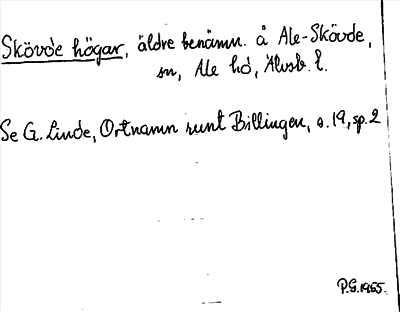 Skövde högar, äldre benämn. å Ale-Skövde,
sn, Ale hd, Älvsb. l.
Se G. Linde, Ortnamn runt Billingen, s. 19, sp. 2
P.G. 1965.